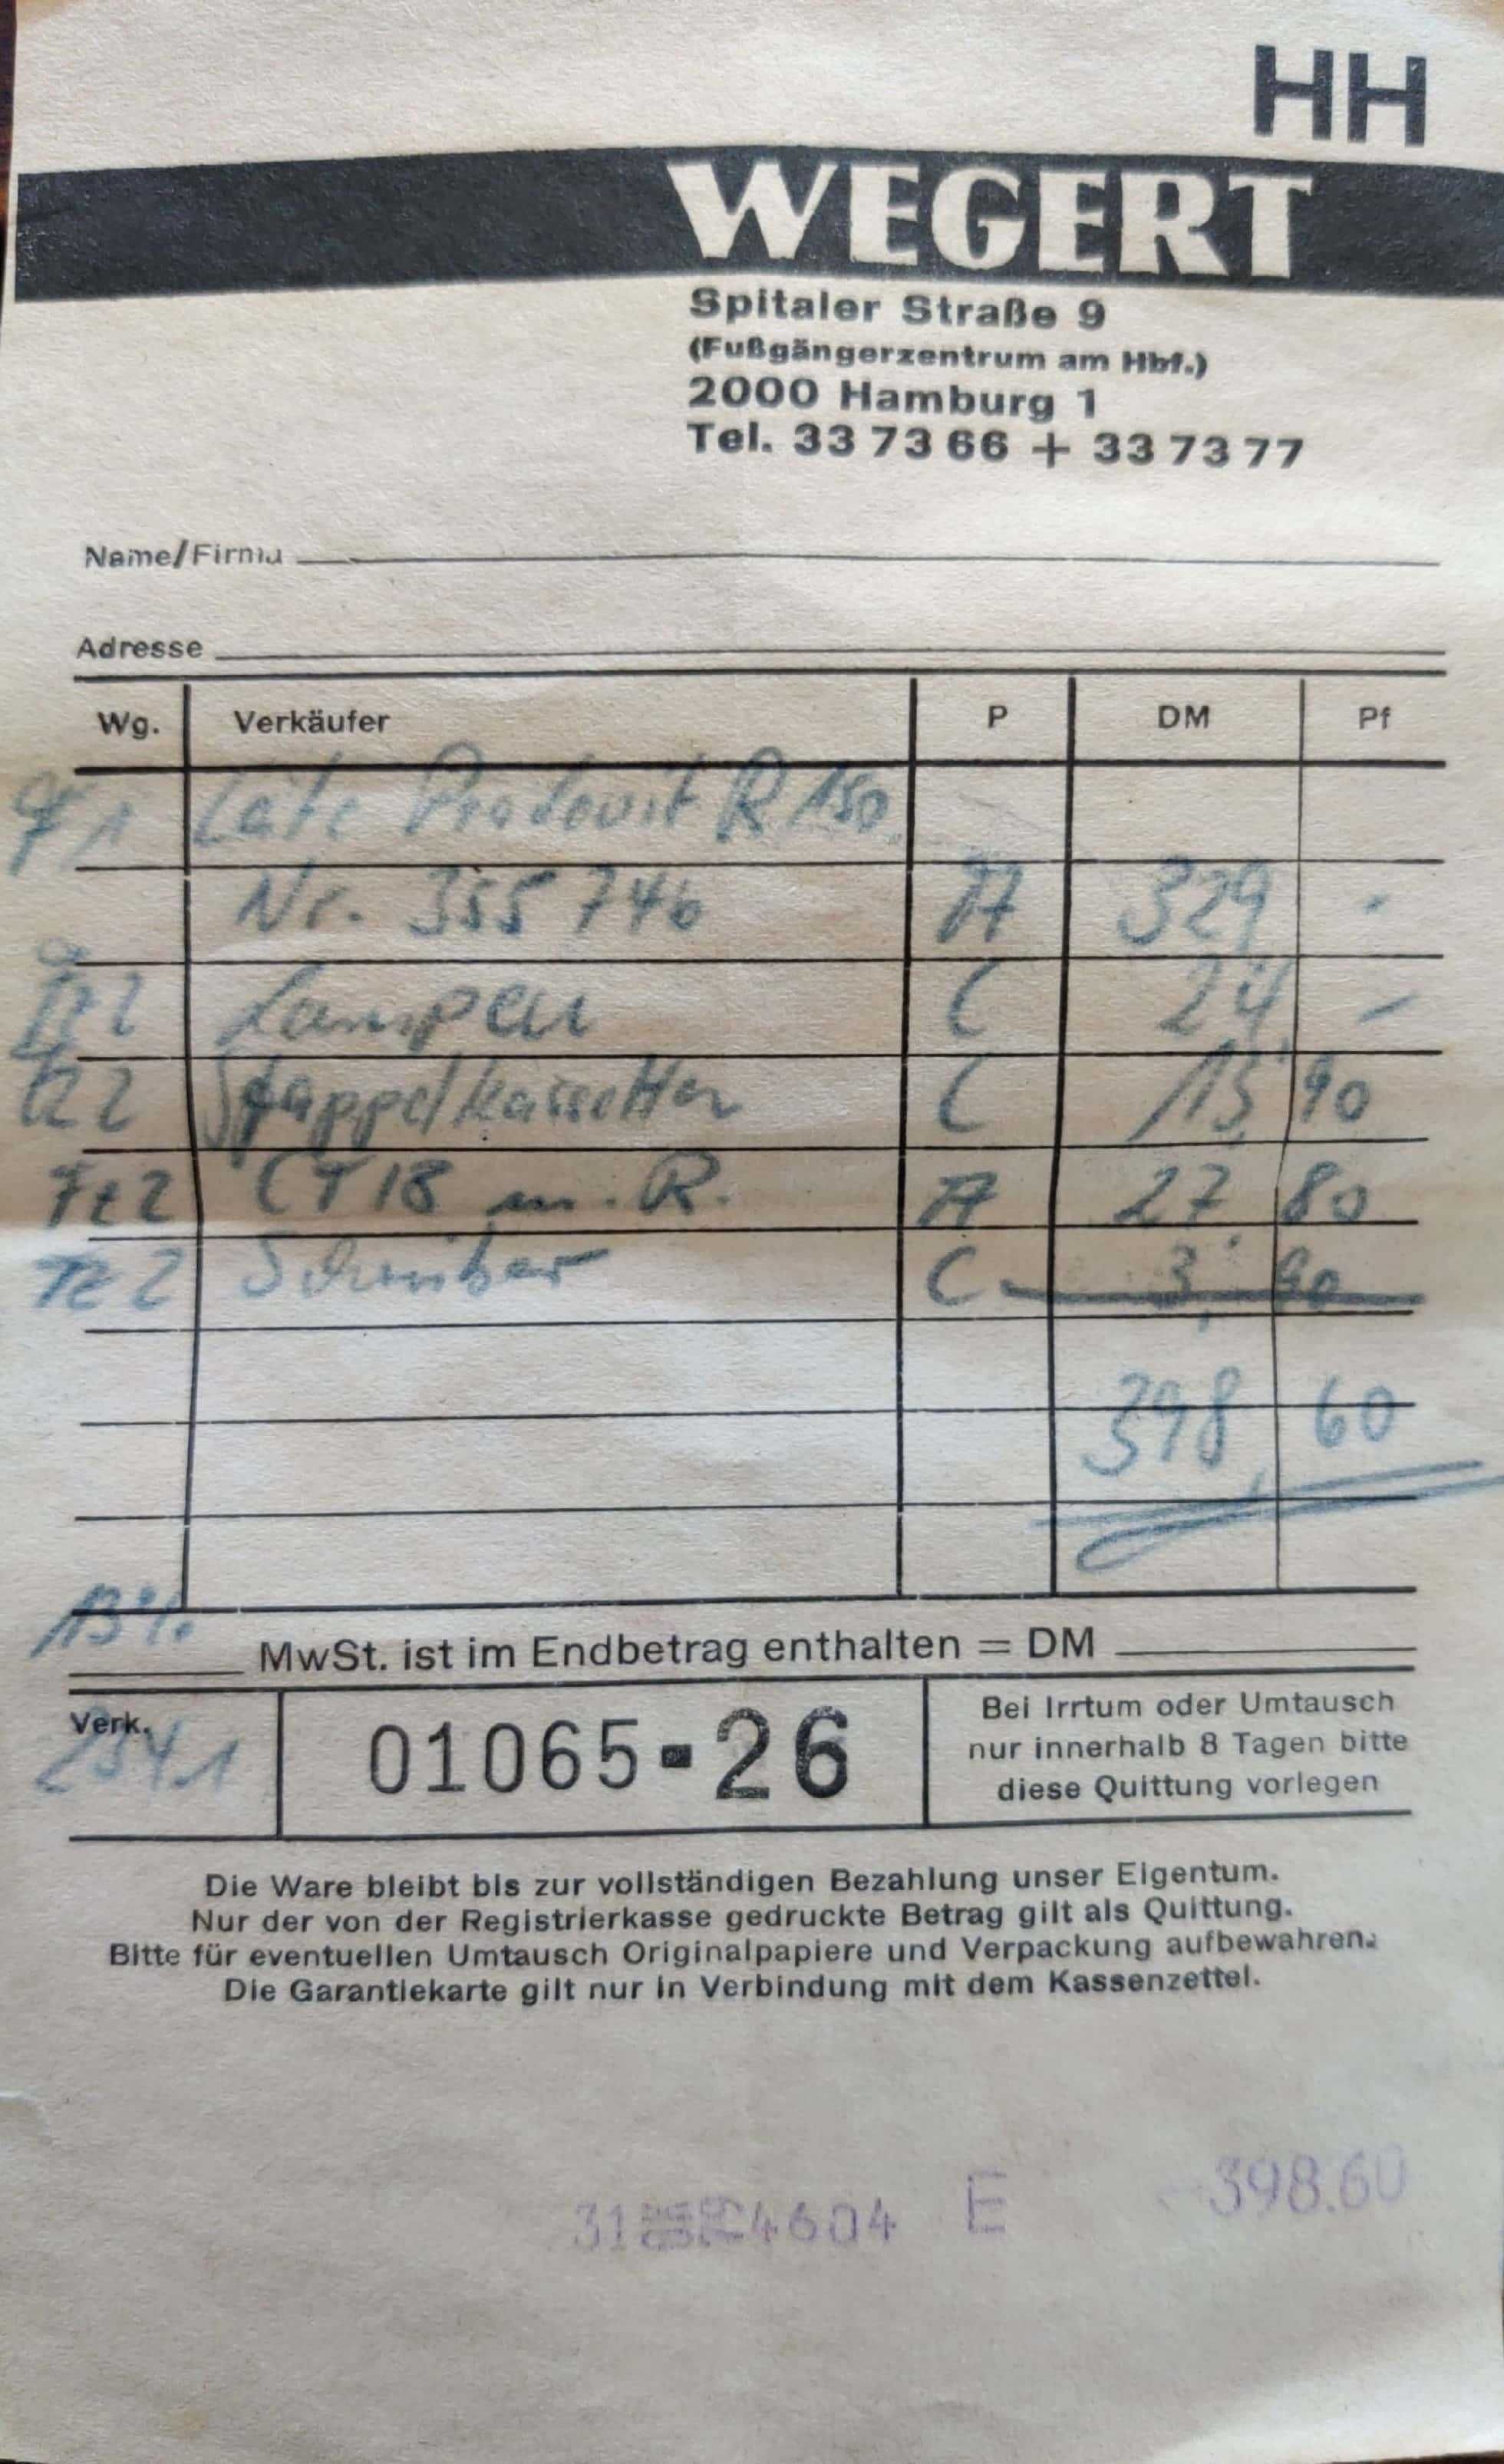 HH
WEGERT
Spitaler Straße 9
(Fußgängerzentrum am Hbf.)
2000 Hamburg 1
Tel. 33 73 66 + 33 73 77
Name/Firma
Adresse
Wg. Verkäufer P DM Pf
Pradovit R 150
Nr. 355 746 A 329 -
Lampen C 24 -
Stappelkassetten C 15, 90
Fe2 CT 18 m. R. A 27, 80
C 3, 90
398, 60
13%
MwSt. ist im Endbetrag enthalten = DM
Verk. 01065-26
Bei Irrtum oder Umtausch
nur innerhalb 8 Tagen bitte
diese Quittung vorlegen
Die Ware bleibt bis zur vollständigen Bezahlung unser Eigentum.
Nur der von der Registrierkasse gedruckte Betrag gilt als Quittung.
Bitte für eventuellen Umtausch Originalpapiere und Verpackung aufbewahren.
Die Garantiekarte gilt nur in Verbindung mit dem Kassenzettel.
E 398.60